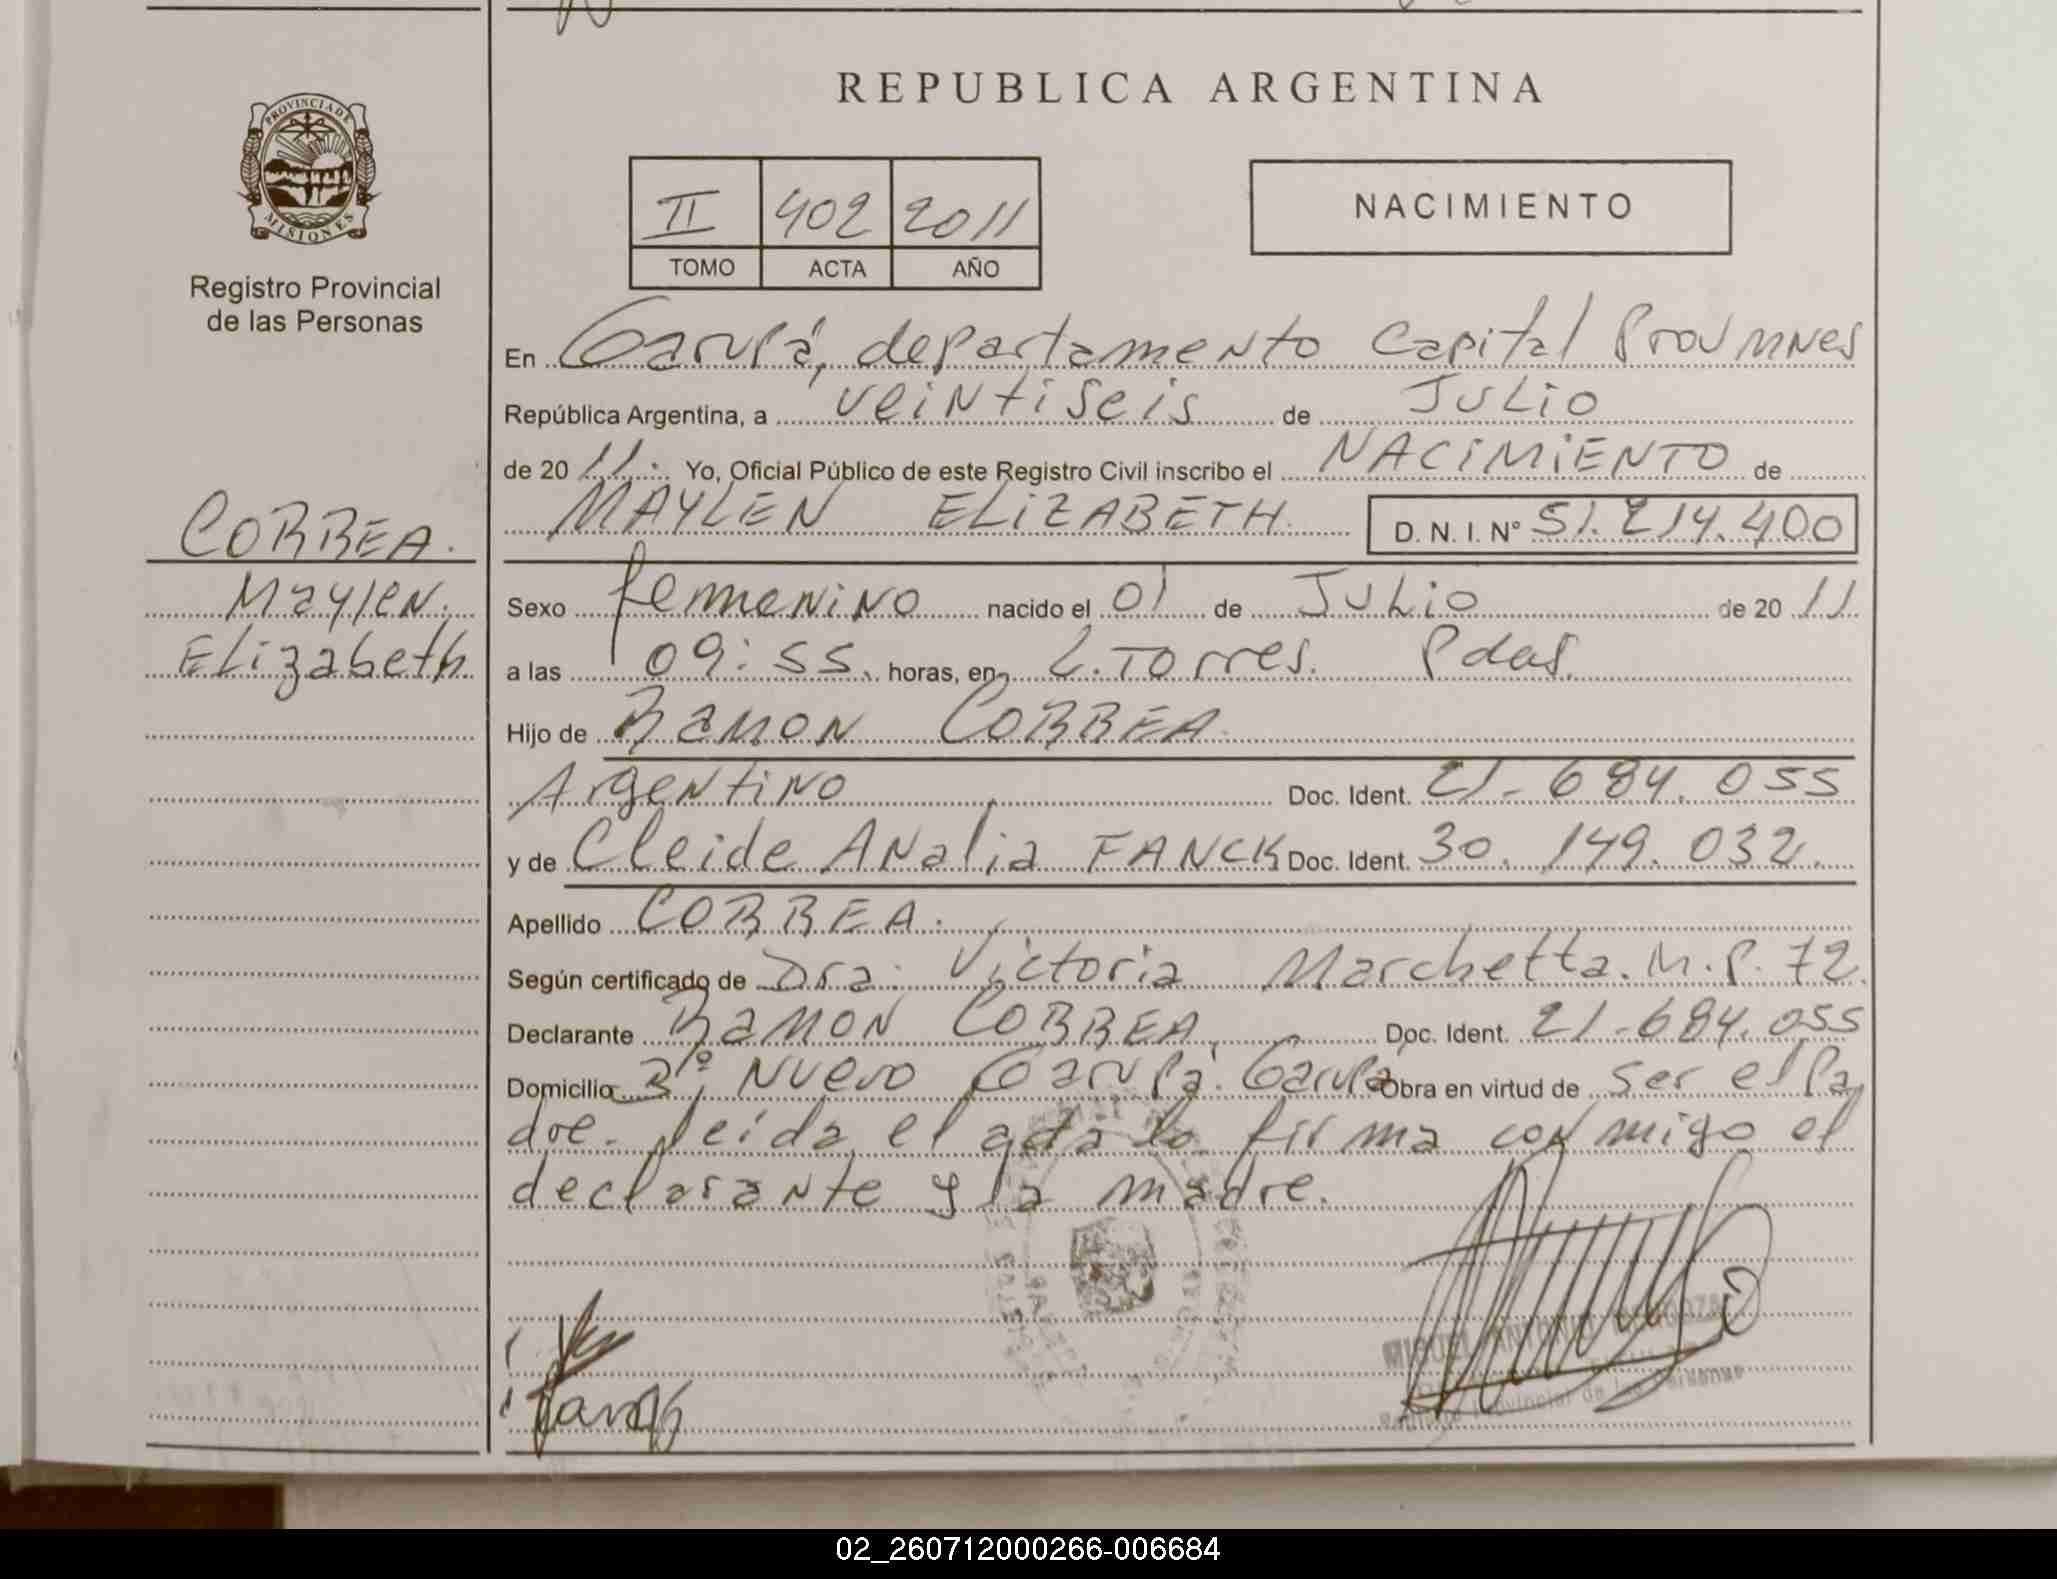 REPUBLICA ARGENTINA
PROVINCIA DE
MISIONES
Registro Provincial
de las Personas
II 402 2011
TOMO ACTA AÑO
NACIMIENTO
CORREA.
Maylen.
Elizabeth
En Garupá, departamento Capital Prov Mnes
República Argentina, a veintiseis de Julio
de 20 11. Yo, Oficial Público de este Registro Civil inscribo el NACIMIENTO de
MAYLEN ELIZABETH. D. N. I. Nº 51.214.400
Sexo femenino nacido el 01 de Julio de 20 11
a las 09:55. horas, en L. Torres. Pdas.
Hijo de Ramon CORREA.
Argentino Doc. Ident. 21-684.055
y de Cleide Analia FANCK Doc. Ident. 30.149.032.
Apellido CORREA.
Según certificado de Dra. Victoria Marchetta. M.P. 72.
Declarante Ramon CORREA, Doc. Ident. 21-684.055
Domicilio Bº, Nuevo Garupá. Garupá Obra en virtud de ser el Pa
dre. leída el acta lo firma conmigo el
declarante y la madre.
MIGUEL ANTONIO
Registro Provincial de las Personas
02_260712000266-006684